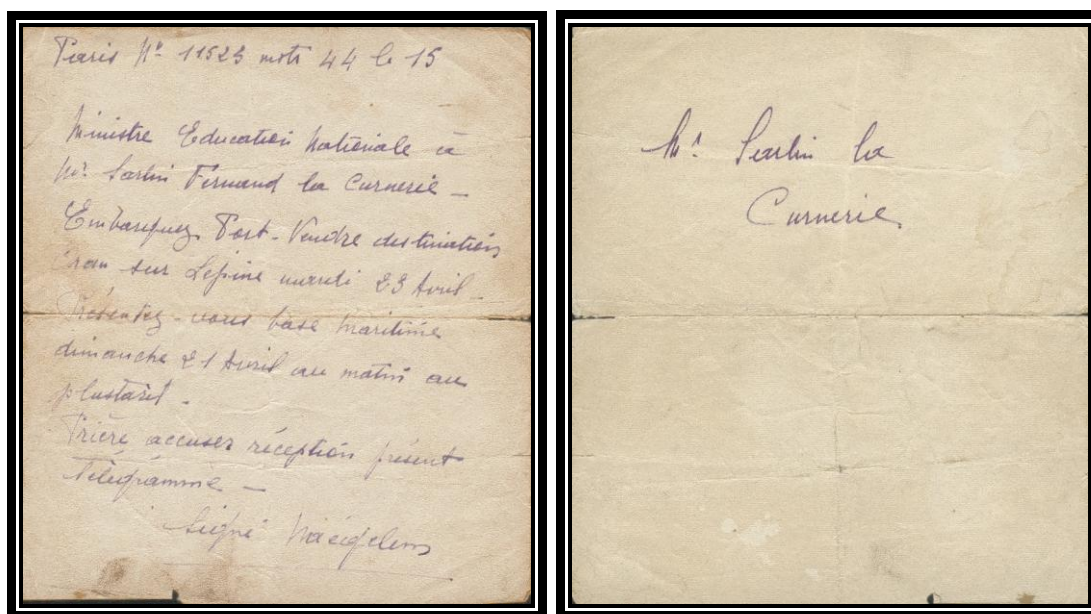 Paris N° 11523 mots 44 le 15
Ministre Education Nationale à
Mr Sarlin Fernand la Curnerie –
Embarquez Port-Vendre destination
Oran sur Lépine mardi 23 Avril –
Présentez-vous base maritime
dimanche 21 Avril au matin au
plustard –
Prière accuser réception présent
Télégramme –
Signé
Mr Sarlin la
Curnerie